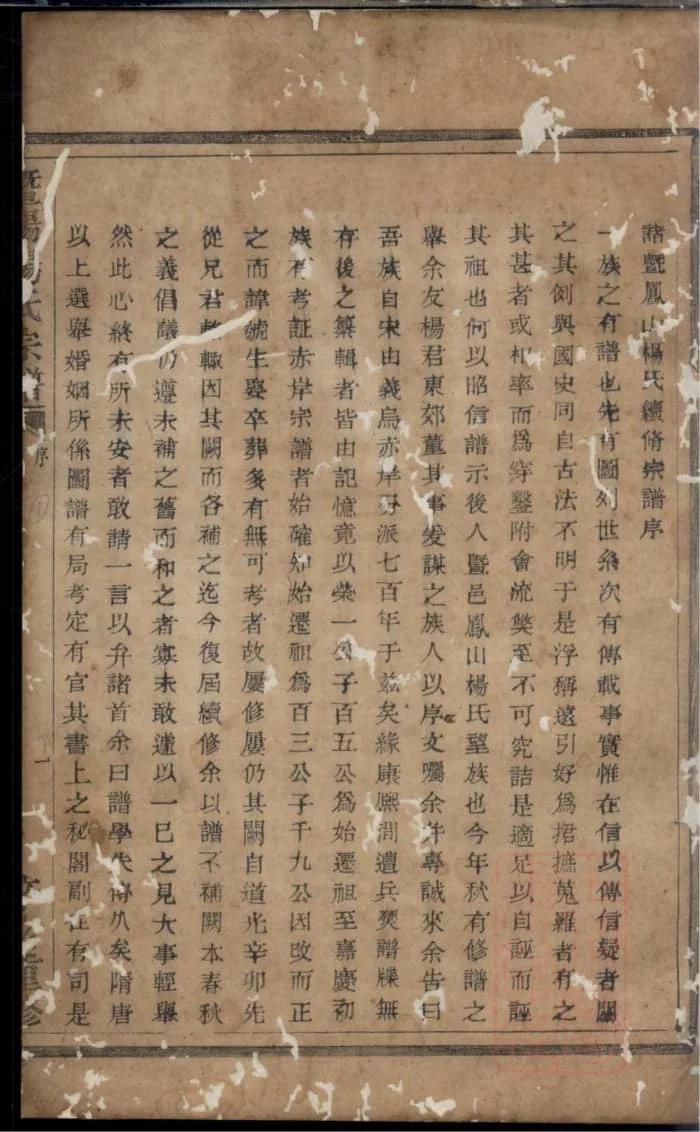 諸暨鳳山楊氏續脩宗譜序
一族之有譜也先有圖列世系次有傳載事實惟在信以傳信疑者闕
之其例與國史同自古法不明于是浮稱遠引好為捃摭蒐羅者有之
其甚者或相率而為穿鑿附會流獘至不可究詰是適足以自誣而誣
其祖也何以昭信譜示後人暨邑鳳山楊氏望族也今年秋有修譜之
舉余友楊君東郊董其事爰謀之族人以序文囑余并專誠來余告曰
吾族自宋由義烏赤岸分派七百年于茲矣緣康熙間遭兵燹譜牒無
存後之纂輯者皆由記憶竟以榮一公子百五公為始遷祖至嘉慶初
族有考証赤岸宗譜者始確知始遷祖為百三公子千九公因改而正
之而諱號生娶卒葬多有無可考者故屢修屢仍其闕自道光辛卯先
從兄君輒因其闕而各補之迄今復屆續修余以譜不補闕本春秋
之義倡議仍遵未補之舊而和之者寡未敢遽以一已之見大事輕舉
然此心終有所未安者敢請一言以弁諸首余曰譜學失傳久矣隋唐
以上選舉婚姻所係圖譜有局考定有官其書上之秘閣副在有司是
暨陽楊氏宗譜
序
一